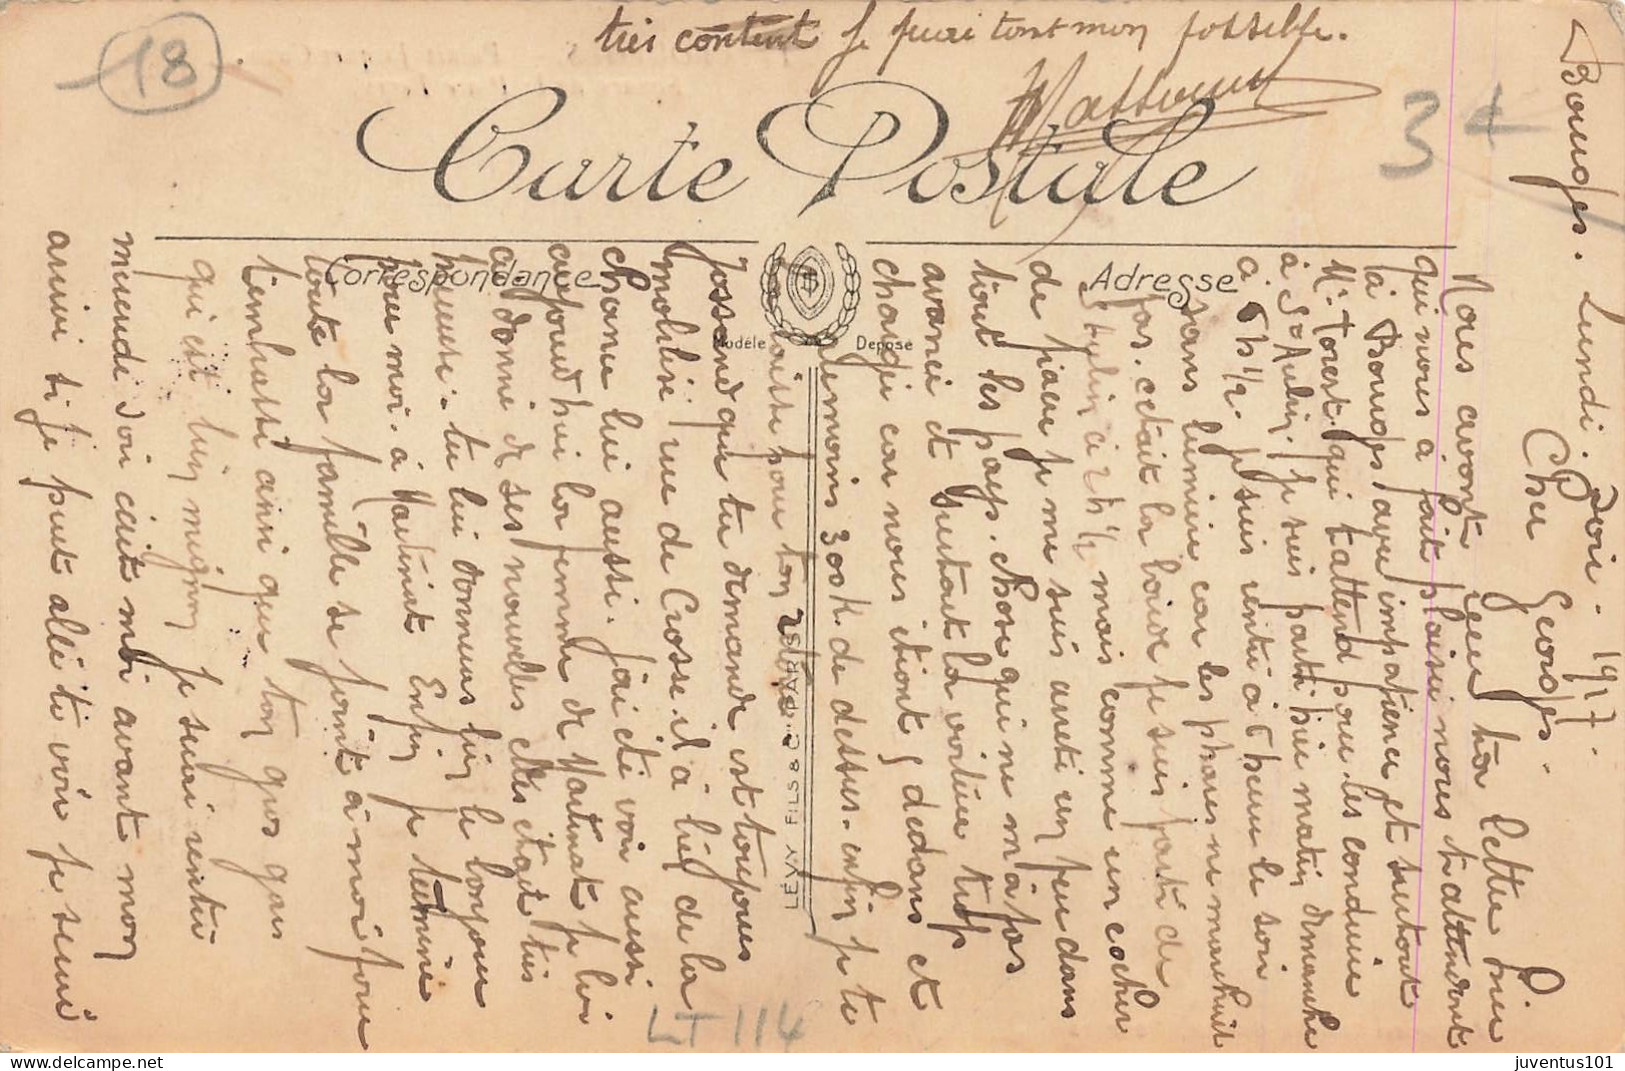 Bourges. Lundi. Soir. 1917.
Cher Georges.
Nous avont reçu ta lettre hier
qui nous à fait plaisir nous t'attendont
à Bourges avec impatience et surtout
Mr Touest. qui t'attend pour les conduire
à St Aubin. je suis parti hier matin dimanche
à 5h½. je suis rentré à 6 heure le soir
sans lumière car les phares ne marchait
pas. c'etait la boire je suis parti de
St Aubin à 2h½ mais comme un cocher
de fiacre je me suis arreté un peu dans
tout les pays. Chose qui ne m'a pas
avancé et surtout la voiture trop
chargé car nous étiont 5 dedans et
au moins 300 k. de dessus. enfin je te
laisse pour ton retour.
Jossand que tu demande est toujours
mobilisé rue de Crosse. il a lieu de la
chance lui aussi. j'ai été voir aussi
aujourd'hui la femme de Martinat je lui
ai donné de ses nouvelles elles était très
heureuse. tu lui donneras bien le bonjour
pour moi. à Martinat Enfin je termine
toute la famille se joint à moi pour
t'embrasser ainsi que ton gros gars
qui est bien mignon je serai rentré
mercredi soir c'est moi avant mon
arrivé si je peut allé te voir je serai
très content je ferai tout mon possible.
Carte Postale
Correspondance
Adresse
Modèle Déposé
LÉVY FILS & Cie PARIS
18
3
LT 114
juventus101